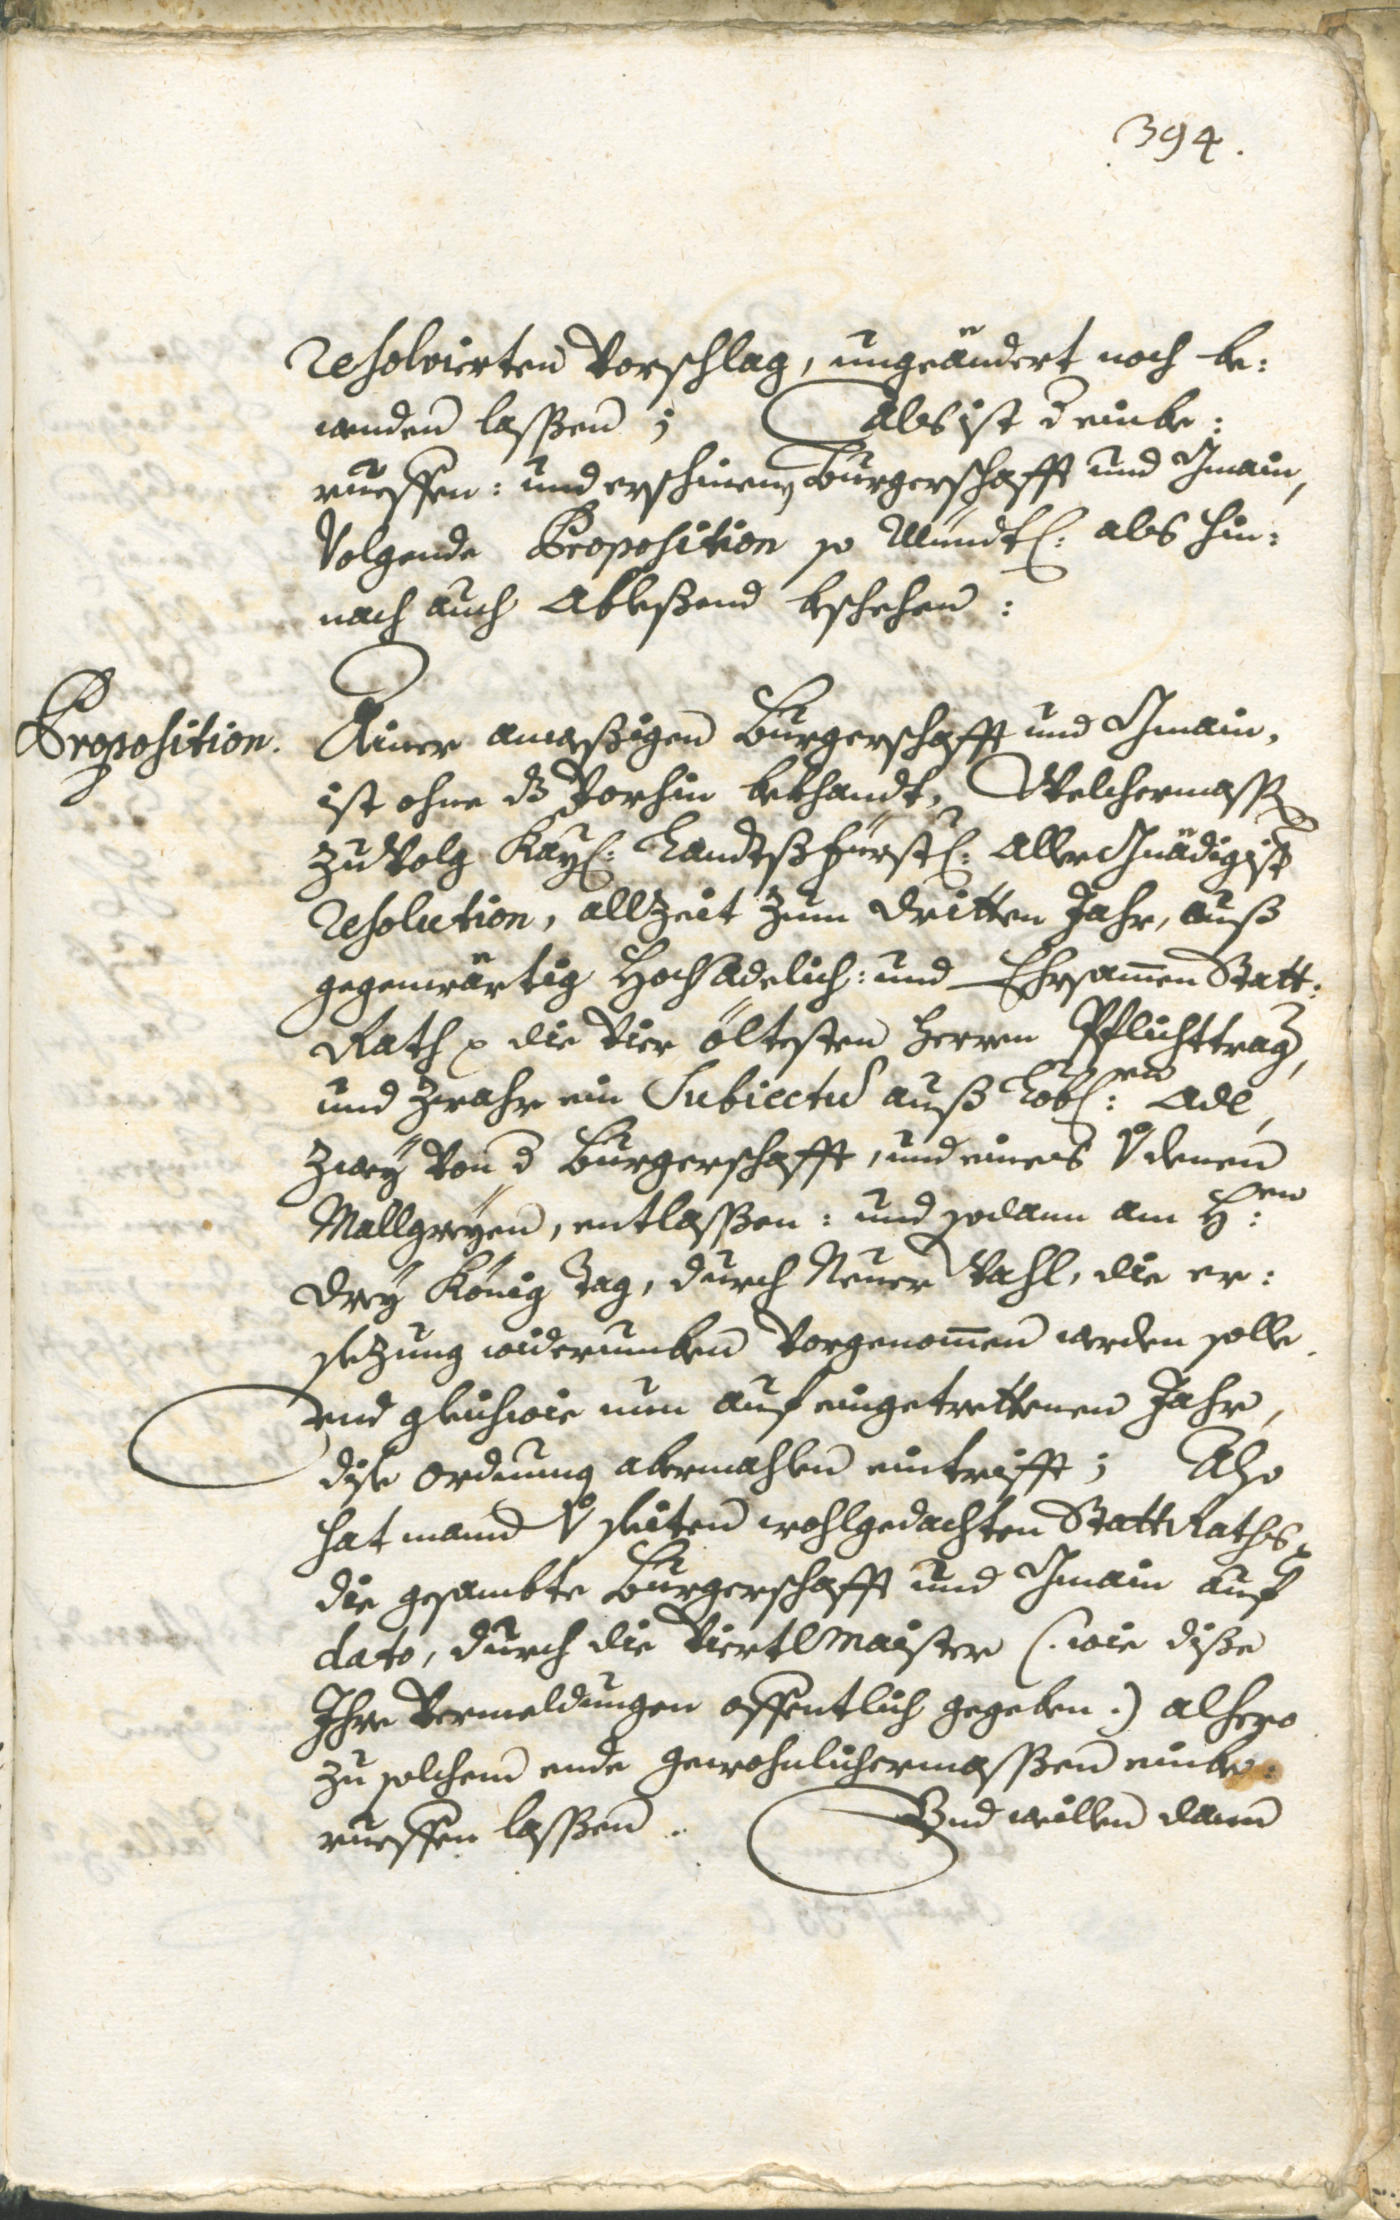 394.
resolvierten Vorschlag, ungeändert noch be:
wenden lassen; Als ist d einbe:
rueffen: und erschinen Burgerschafft und Gmain,
Volgende Proposition so Mündtl: als hin:
nach auch Ableßend beschehen:
Proposition.
Ainer amessigen Burgerschafft und Gmain,
ist ohne dz Vorhin bekhandt, Welchermassen
Zuvolg Kayl: Landtßfürstl: Aller Gnädigist
resolution, allzeit zum dritten Jahr, auß
gegenwärtig Hochadelich: und Ehrsamen Statt:
Rath die Vier öltesten Herren Pflichttrag,
und Zwahr ein Subiectū auß Lobl:en Adl,
zwey von d Burgerschafft, und eines V denen
Mallgreyen, entlassen: und sodann am H:en
drey König Tag, durch Neuer Wahl, die er:
sezung widerumben Vorgenomen werden solle.
Und gleichwie nun auf eingetrettenen Jahr,
dise ordnung abermahlen eintrifft; Also
hat mann V seiten wohlgedachten Statt Raths
die gesambte Burgerschafft und Gmain auf
dato, durch die Viertlmaister (. wie diße
Ihre Vermeldungen offentlich gegeben.) alhero
zu solchem ende gewohnlichermassen einbe:
rueffen lassen. Und weillen dann